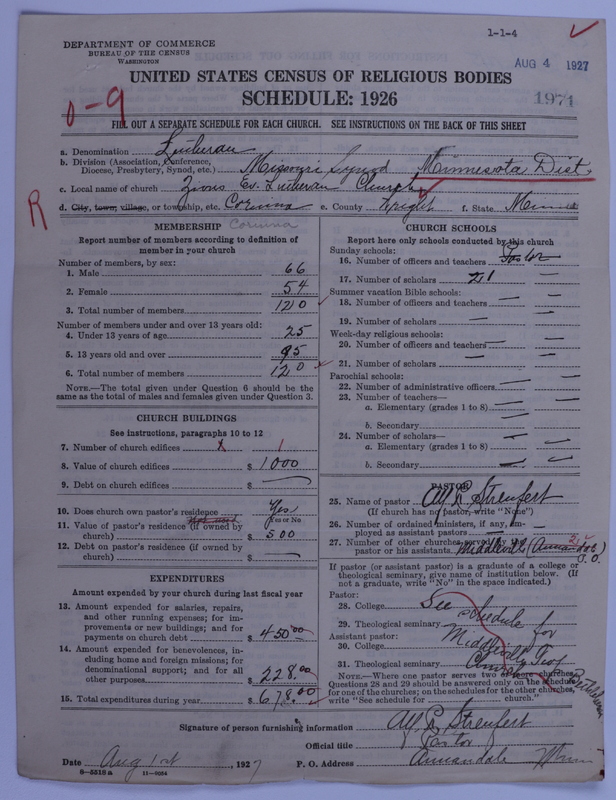 1-1-4
DEPARTMENT OF COMMERCE
BUREAU OF THE CENSUS
WASHINGTON
AUG 4 1927
UNITED STATES CENSUS OF RELIGIOUS BODIES
SCHEDULE: 1926
1971
0-9
FILL OUT A SEPARATE SCHEDULE FOR EACH CHURCH. SEE INSTRUCTIONS ON THE BACK OF THIS SHEET
a. Denomination Lutheran
b. Division (Association, Conference, Diocese, Presbytery, Synod, etc.) Missouri Synod Minnesota Dist.
c. Local name of church Zions Ev. Lutheran Church
R
d. City, town, village, or township, etc. Corinna e. County Wright f. State Minn
MEMBERSHIP Corinna
Report number of members according to definition of member in your church
Number of members, by sex:
1. Male 66
2. Female 54
3. Total number of members 120
Number of members under and over 13 years old:
4. Under 13 years of age 25
5. 13 years old and over 95
6. Total number of members 120
NOTE.—The total given under Question 6 should be the same as the total of males and females given under Question 3.
CHURCH BUILDINGS
See instructions, paragraphs 10 to 12
7. Number of church edifices 1
8. Value of church edifices $ 1000
9. Debt on church edifices $ —
10. Does church own pastor's residence Yes
Yes or No
11. Value of pastor's residence (if owned by church) $ 500
12. Debt on pastor's residence (if owned by church) $ —
EXPENDITURES
Amount expended by your church during last fiscal year
13. Amount expended for salaries, repairs, and other running expenses; for improvements or new buildings; and for payments on church debt $ 450.00
14. Amount expended for benevolences, including home and foreign missions; for denominational support; and for all other purposes $ 228.00
15. Total expenditures during year $ 678.00
CHURCH SCHOOLS
Report here only schools conducted by this church
Sunday schools:
16. Number of officers and teachers Pastor
17. Number of scholars 21
Summer vacation Bible schools:
18. Number of officers and teachers —
19. Number of scholars —
Week-day religious schools:
20. Number of officers and teachers —
21. Number of scholars —
Parochial schools:
22. Number of administrative officers —
23. Number of teachers—
a. Elementary (grades 1 to 8) —
b. Secondary —
24. Number of scholars—
a. Elementary (grades 1 to 8) —
b. Secondary —
PASTOR
25. Name of pastor Streufert
(If church has no pastor, write "None")
26. Number of ordained ministers, if any, employed as assistant pastors
27. Number of other churches served by the pastor or his assistants Middleville (Annandale P.O.) 2
If pastor (or assistant pastor) is a graduate of a college or theological seminary, give name of institution below. (If not a graduate, write "No" in the space indicated.)
Pastor:
28. College See
29. Theological seminary schedule for
Assistant pastor:
30. College Middleville
31. Theological seminary Church
NOTE.—Where one pastor serves two or more churches, Questions 28 and 29 should be answered only on the schedule for one of the churches; on the schedules for the other churches, write "See schedule for church."
Signature of person furnishing information Streufert
Official title Pastor
Date Aug 1st, 1927 P. O. Address Annandale Minn
8-5518a 11-9054